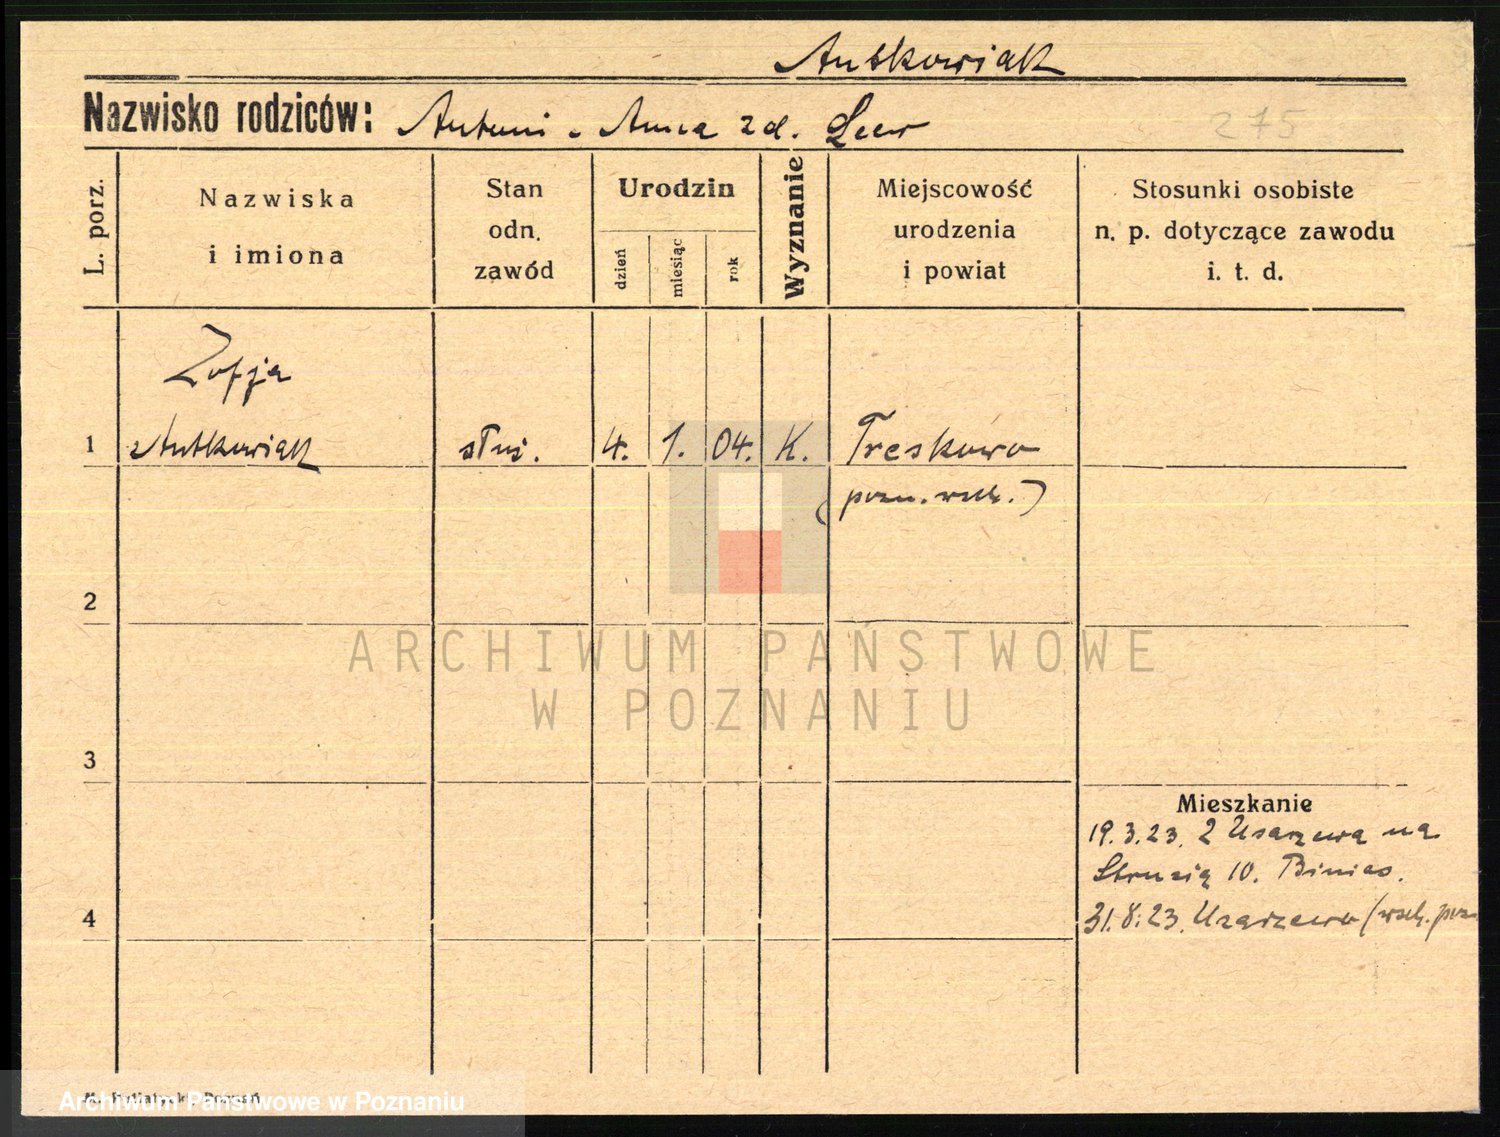 Antkowiak
Nazwisko rodziców: Antoni . Anna zd. 275
L. porz.
Nazwiska
i imiona
Stan
odn.
zawód
Urodzin
dzień
miesiąc
rok
Wyznanie
Miejscowość
urodzenia
i powiat
Stosunki osobiste
n. p. dotyczące zawodu
i. t. d.
Zofja
1 Antkowiak służ. 4. 1. 04. K. Treskowo
(pozn. wsch.)
2
ARCHIWUM PAŃSTWOWE
W POZNANIU
3
Mieszkanie
19.3.23. Z Uzarzewa na
Strusią 10. Binias.
4
31.8.23. Uzarzewo (wsch. poz
Archiwum Państwowe w Poznaniu